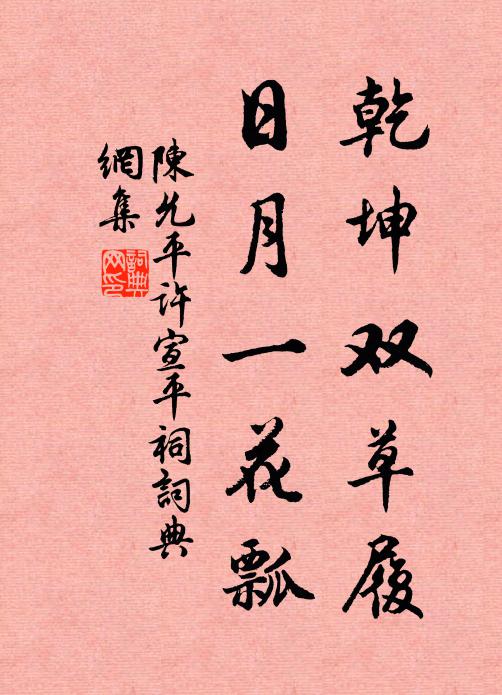 乾坤双草履
日月一花瓢
陳允平许宣平祠詞典
網集
詞典网印